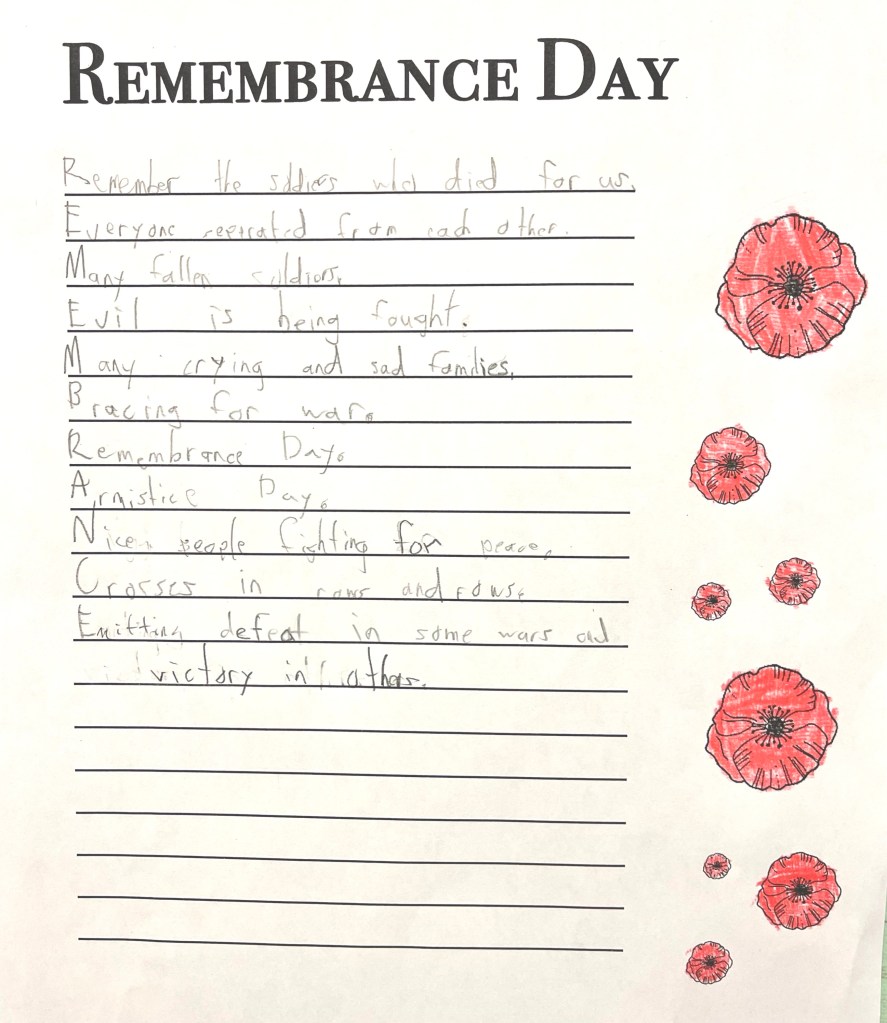 REMEMBRANCE DAY
Remember the soldiers who died for us.
Everyone seperated from each other.
Many fallen soldiors.
Evil is being fought.
Many crying and sad families.
Bracing for war.
Remembrance Day.
Armistice Day.
Nice people fighting for peace.
Crosses in rows and rows.
Emitting defeat in some wars and
victory in others.